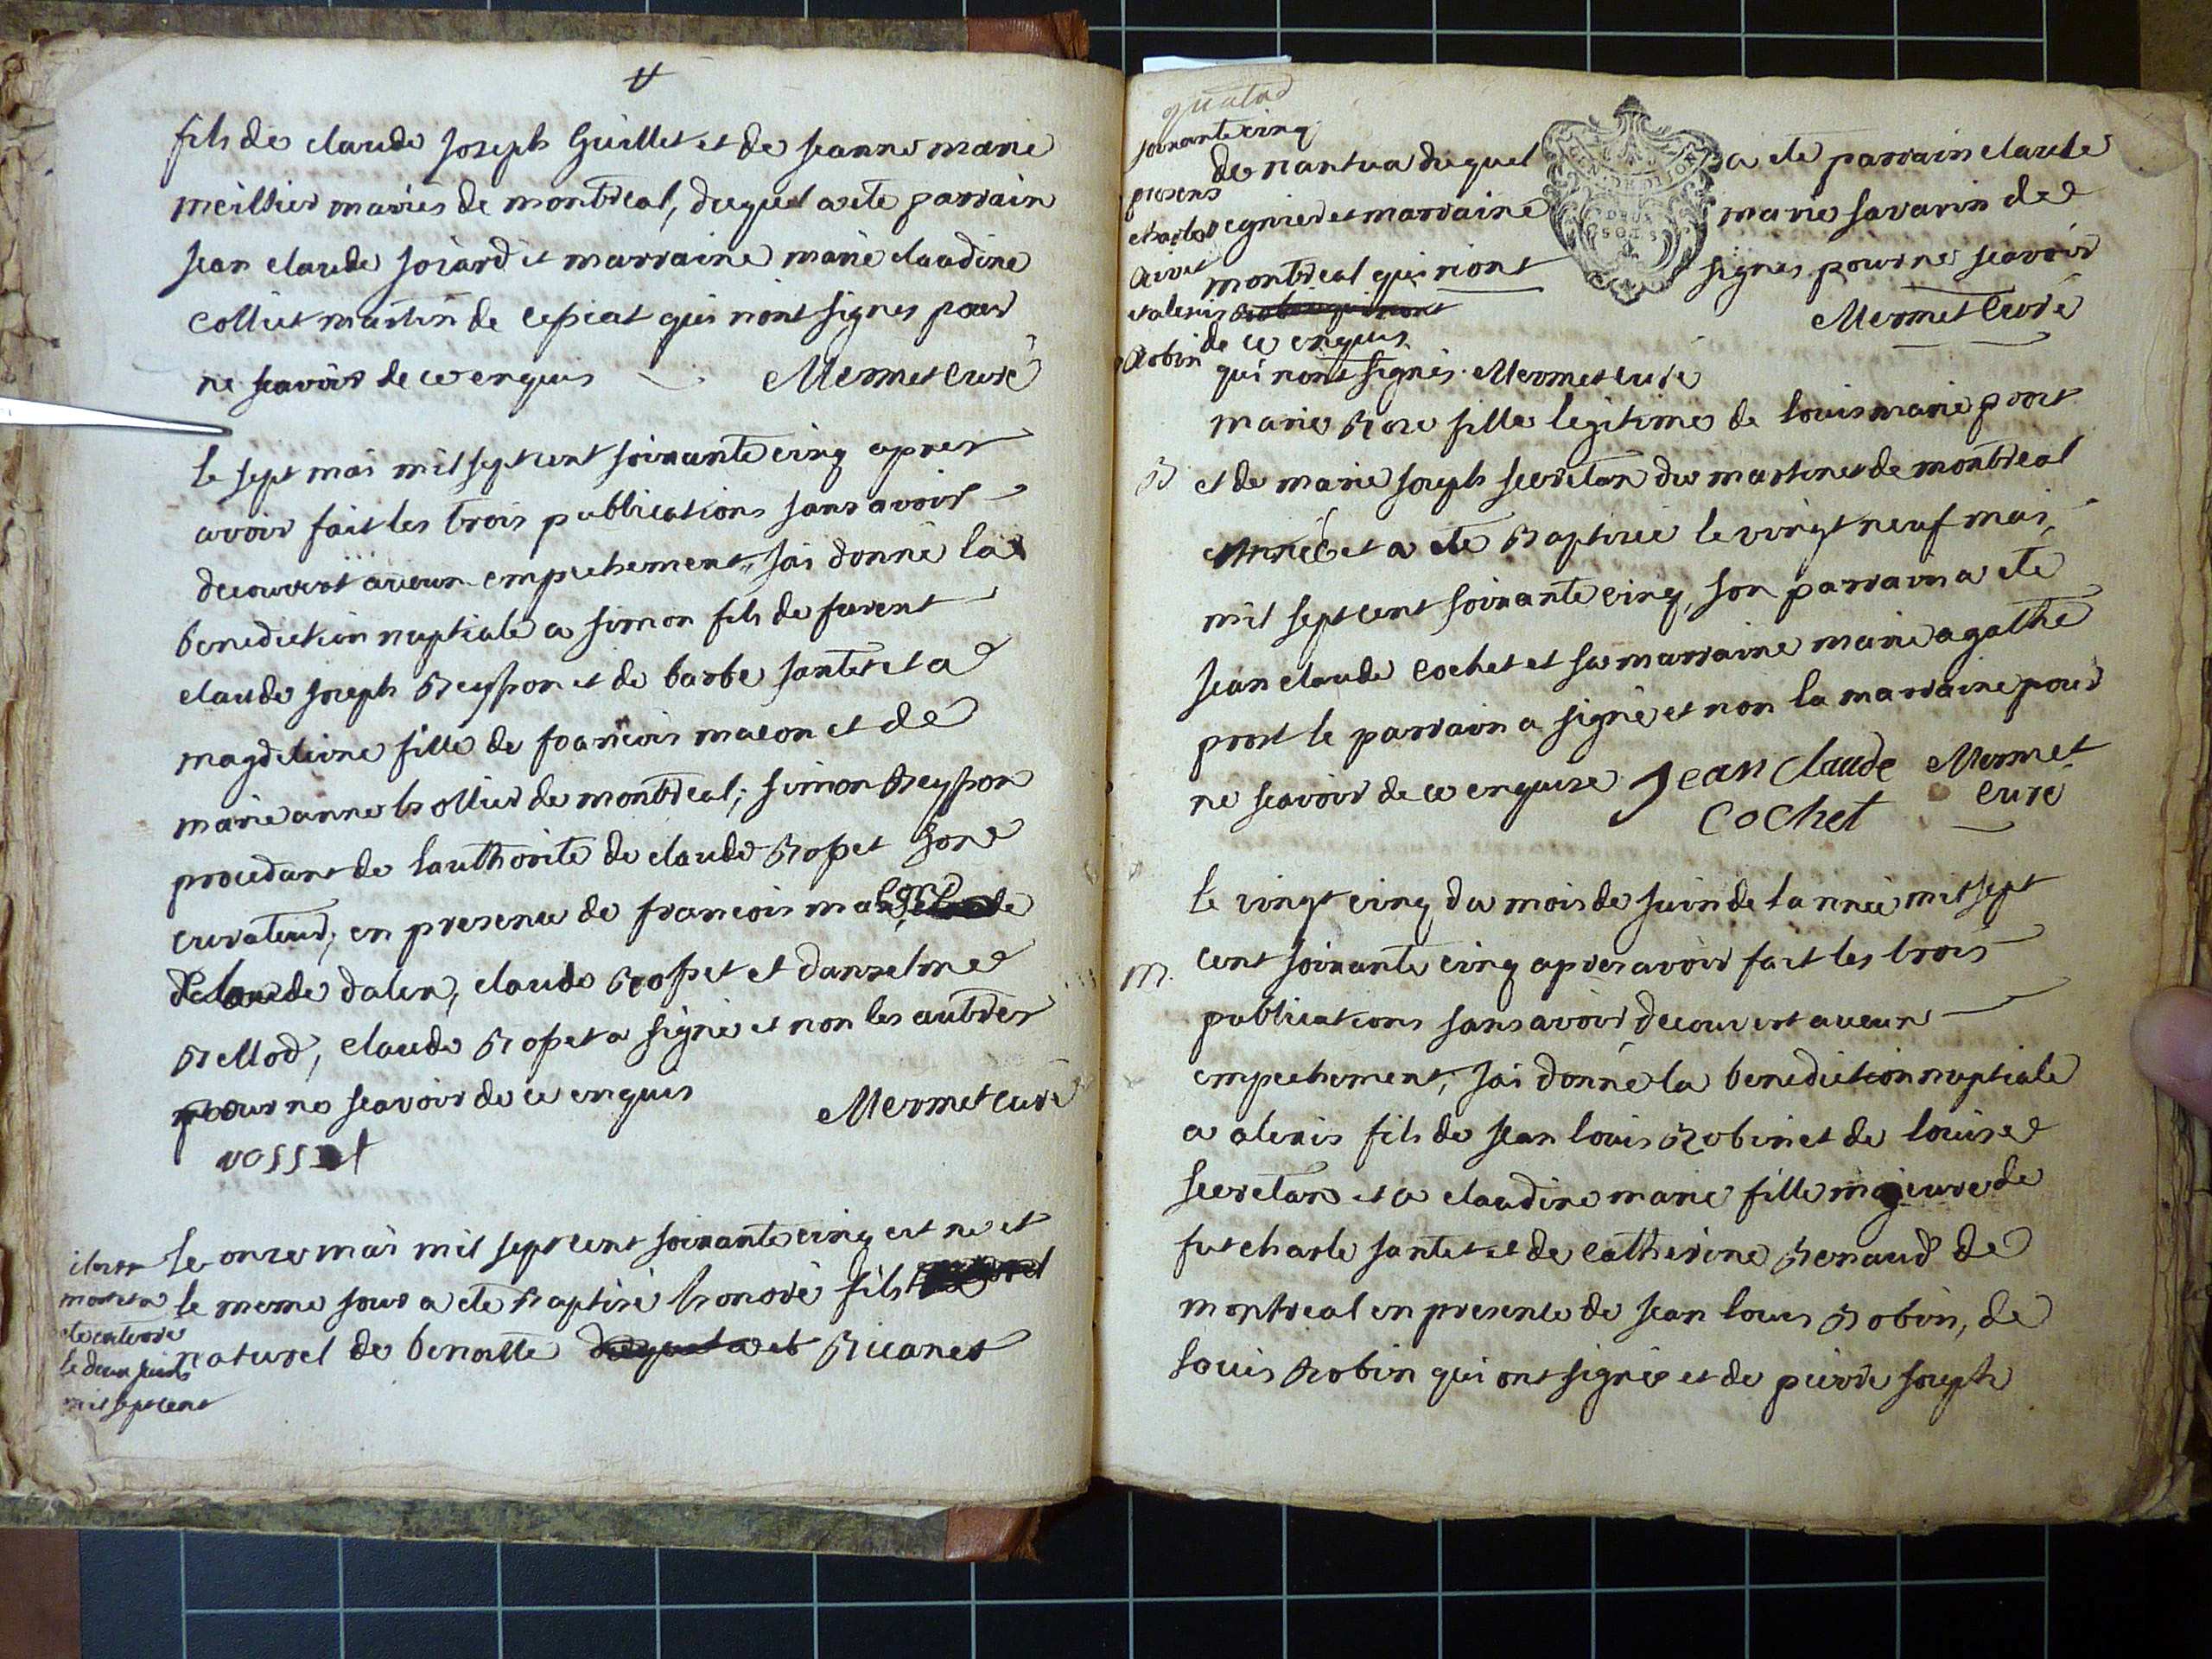 fils de claude Joseph Guillet et de jeanne marie
meillier mariés de montreal, duquel a ete parrain
jean claude joiard et marraine marie claudine
colliet martin de cepiat qui n'ont signes pour
ne scavoir de ce enquis Mermet curé
le sept mai mil sept cent soixante cinq apres
avoir fait les trois publications sans avoir
decouvert aucun empechement, j'ai donné la
benediction nuptiale a simon fils de furent
claude joseph Reysson et de barbe santet et a
magdeleine fille de francois macon et de
marie anne hollier de montreal; simon Reysson
procedant de lauthorité de claude Rosset son
curateur, en presence de francois
de claude dalex, claude Rosset et danselme
Rellod, claude Rosset a signé et non les autres
pour ne scavoir de ce enquis Mermet curé
rosset
le onze mai mil sept cent soixante cinq est né et
le meme jour a ete Baptisé honoré fils
naturel de benoitte Ricanet
il est
mort et a
ete enterré
le deux juin
mil sept cent
soixante cinq
presens
charles
aivet
et alexis
Robin
qui n'ont signés. Mermet curé
de nantua duquel a ete parrain claude
regnier et marraine marie savarin de
montreal qui n'ont signes pour ne scavoir
de ce enquis Mermet Curé
marie Rose fille legitime de louis marie prost
B et de marie joseph secretan du martinet de montreal
est née et a ete Baptisée le vingt neuf mai
mil sept cent soixante cinq, son parrain a ete
jean claude cochet et sa marraine marie agathe
prost le parrain a signé et non la marraine pour
ne scavoir de ce enquise Jean Claude Mermet
Cochet curé
le vingt cinq du mois de juin de l'année mil sept
M. cent soixante cinq apres avoir fait les trois
publications sans avoir decouvert aucun
empechement, j'ai donné la benediction nuptiale
a alexis fils de jean louis Robin et de louise
secretan et a claudine marie fille majeure de
fut charle santet et de catherine Renaud de
montreal en presence de jean louis Robin, de
louis Robin qui ont signé et de pierre joseph